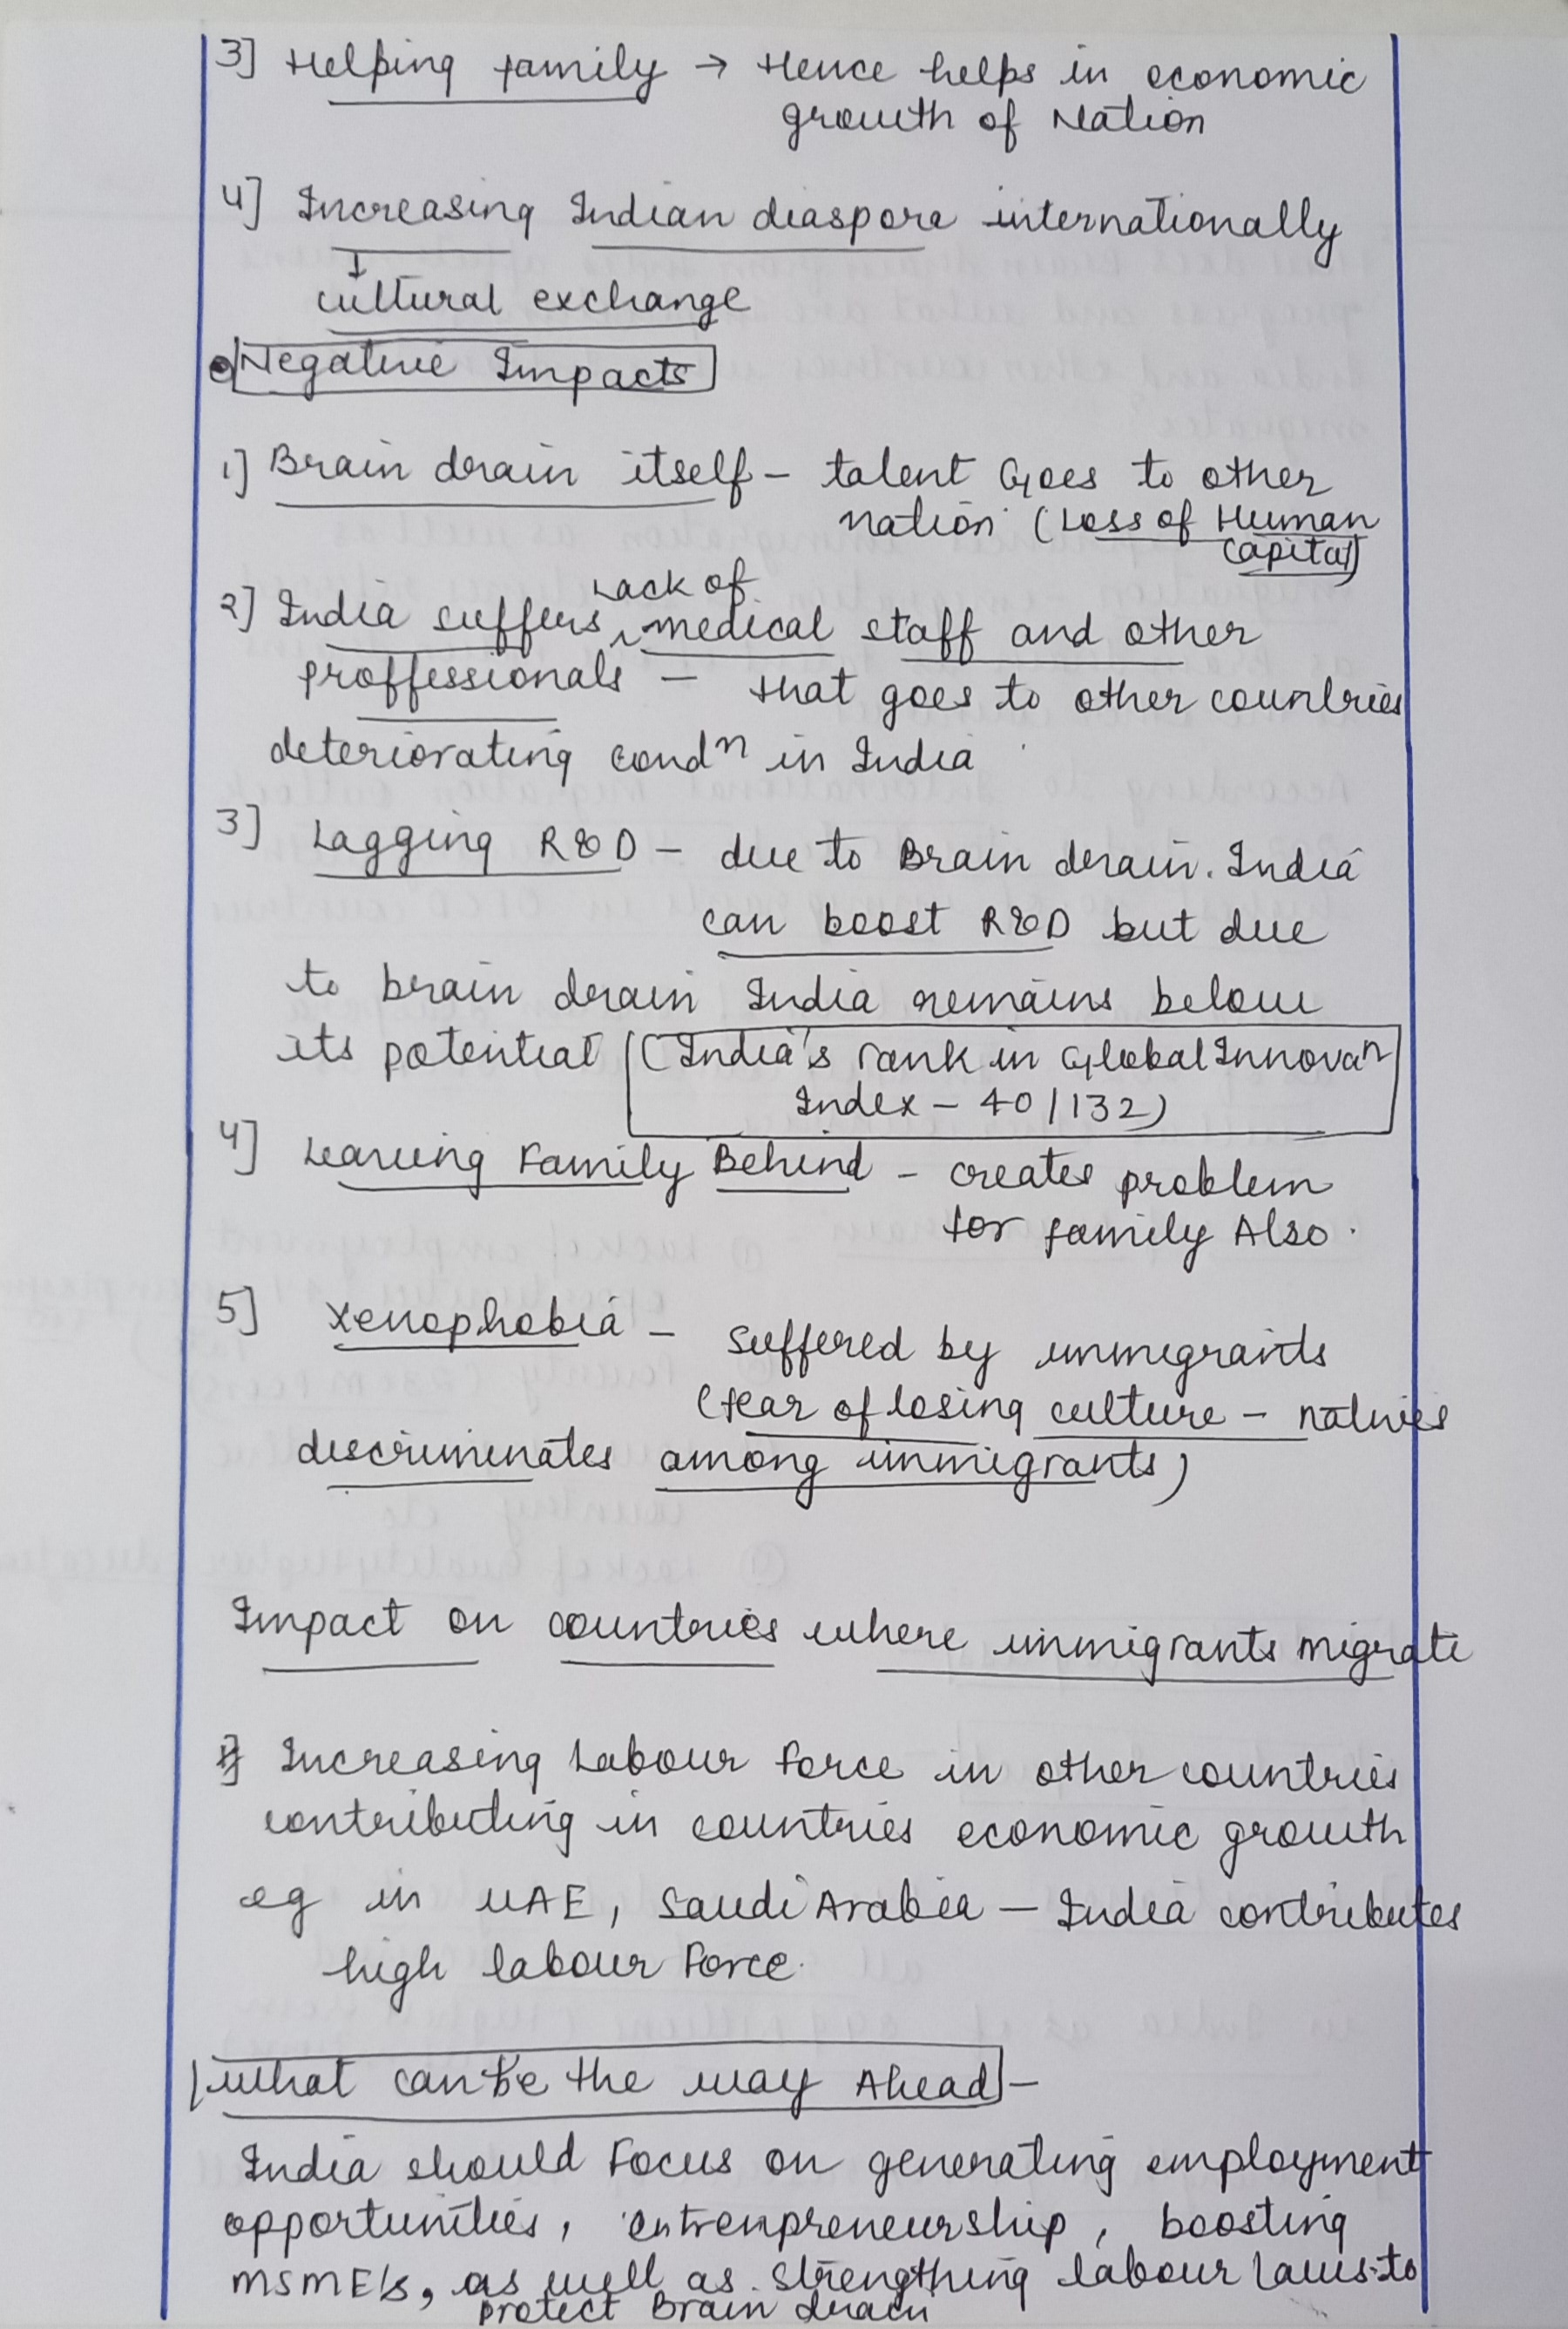 3] Helping family → Hence helps in economic
growth of Nation
4] Increasing Indian diaspora internationally
↓
cultural exchange
Negative Impacts
1] Brain drain itself - talent Goes to other
nation (Loss of Human
Capital)
Lack of
2] India suffers medical staff and other
proffessionals - that goes to other countries
deteriorating condn in India
3] Lagging R&D - due to Brain drain. India
can boost R&D but due
to brain drain India remains below
its potential (India's rank in Global Innovan
Index - 40/132)
4] Leaving Family Behind - creates problem
for family Also.
5] Xenophobia - suffered by immigrants
(fear of losing culture - natives
discriminates among immigrants)
Impact on countries where immigrants migrate
1] Increasing Labour Force in other countries
contributing in countries economic growth
eg in UAE, Saudi Arabia - India contributes
high labour Force.
What can be the way Ahead -
India should Focus on generating employment
opportunities, entrenpreneurship, boosting
MSME's, as well as strengthing labour laws to
protect Brain drain